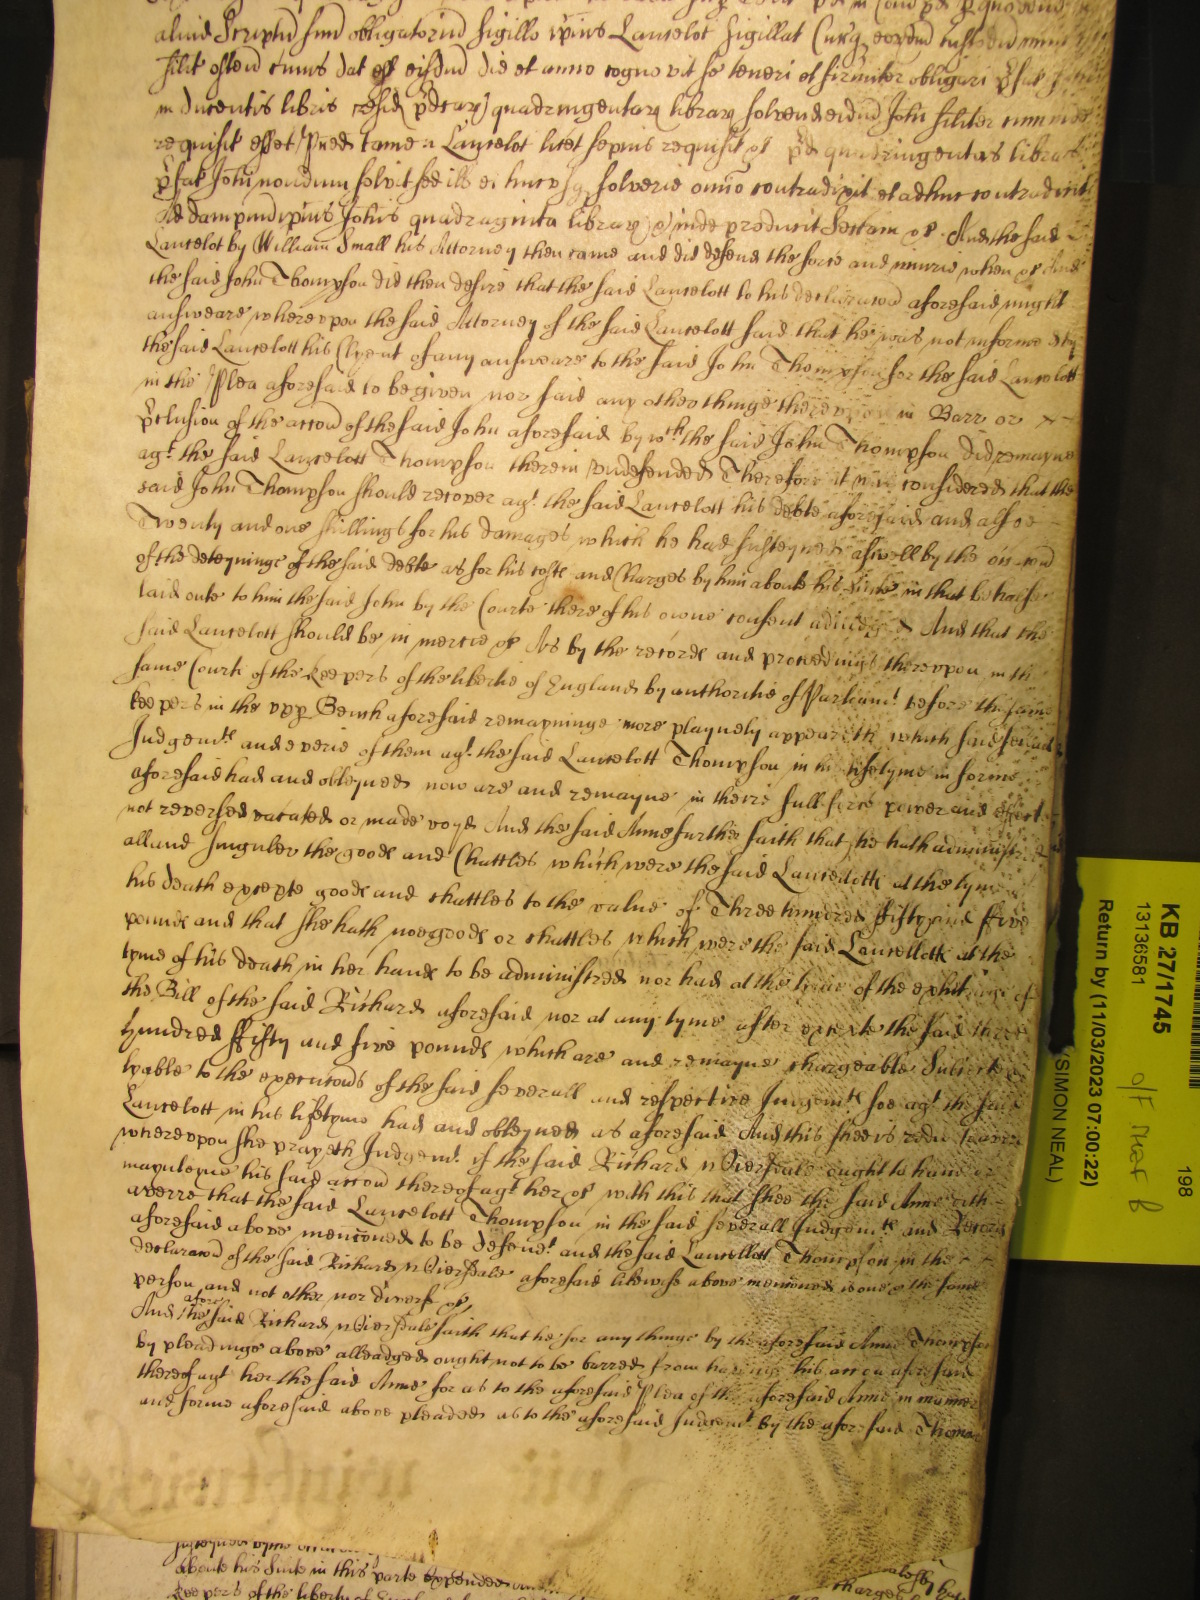 aliud Scriptu suu obligatoriu sigillo ipius Lancelot sigillat Cur
silit ostend cuius dat est eisdud die et anno cognovit se teneri et firmiter obligari
in ducentis libris resid pdcar quadringentar librar solvend eidud John
requisit esset Pred tamen Lancelot licet sepius requisit &c pd quadringentas libras
pfat John nondum solvit sed ill ei huc solvere omio contradixit et adhuc contradicit
Ad dampnu ipius Johis quadraginta librar & inde producit Sectam &c And the said
Lancelot by William Small his Attorney then came and did defend the force and iniurie when &c And
the said John Thompson did then desire that the said Lancelott to his declaracon aforesaid might
answeare whereupon the said Attorney of the said Lancelott said that he was not informed by
the said Lancelott his Clyent of any answeare to the said John Thompson for the said Lancelott
in the Plea aforesaid to be given nor said any other thinge thereupon in Barr or
pclusion of the accon of the said John aforesaid by wch the said John Thompson did remayne
agt the said Lancelott Thompson therein undefended Therefore it was considered that the
said John Thompson should recover agt the said Lancelott his debte aforesaid and alsoe
Twenty and one shillings for his damages which he had susteyned aswell by the occacon
of the deteyninge of the said debte as for his costs and Charges by him aboute his suite in that behalfe
laid oute to him the said John by the Courte there of his owne consent adiudged And that the
said Lancelott should be in mercie &c As by the record and proceedings thereupon in the
same Courte of the Keepers of the libertie of England by authoritie of Parliamt before the same
keepers in the upp Bench aforesaid remayninge more playnely appeareth which said severall
Judgemts and everie of them agt the said Lancelott Thompson in his lifetyme in forme
aforesaid had and obteyned now are and remayne in theire full force power and effect
not reversed vacated or made voyd And the said Anne further saith that she hath administred
all and singuler the goods and Chattles which were the said Lancelotts at the tyme of
his death except goods and chattles to the value of Three hundred fifty and five
pounds and that she hath noe goods or chattles which were the said Lancellotts at the
tyme of his death in her hands to be administred nor had at the time of the exhibitinge of
the Bill of the said Richard aforesaid nor at any tyme after except the said three
hundred fifty and five pounds which are and remayne chargeable Subiecte &
lyable to the execucons of the said severall and respective Judgemts soe agt the said
Lancelott in his lifetyme had and obteyned as aforesaid And this shee is redy to averre
whereupon she prayeth Judgemt if the said Richard Wiersdale ought to have or
maynteyne his said accon thereof agt her &c with this that shee the said Anne will
averre that the said Lancelott Thompson in the said severall Judgemts and Records
aforesaid above menconed to be defendt and the said Lancellott Thompson in the
declaracon of the said Richard Wiersdale aforesaid likewise above menconed is one & the same
person and not other nor divers &c
And the afore said Richard Wiersdale saith that he for any thinge by the aforesaid Anne Thompson
by pleadinge above alleadged ought not to be barred from havinge his accon aforesaid
thereof agt her the said Anne for as to the aforesaid Plea of the aforesaid Anne in manner
and forme aforesaid above pleaded as to the aforesaid Judgemt by the aforesaid Thomas
aboute his Suite in this parte expended
charges
Keepers of the liberty of England
KB 27/1745
13136581
Return by (11/03/2023 07:00:22)
(SIMON NEAL)
198